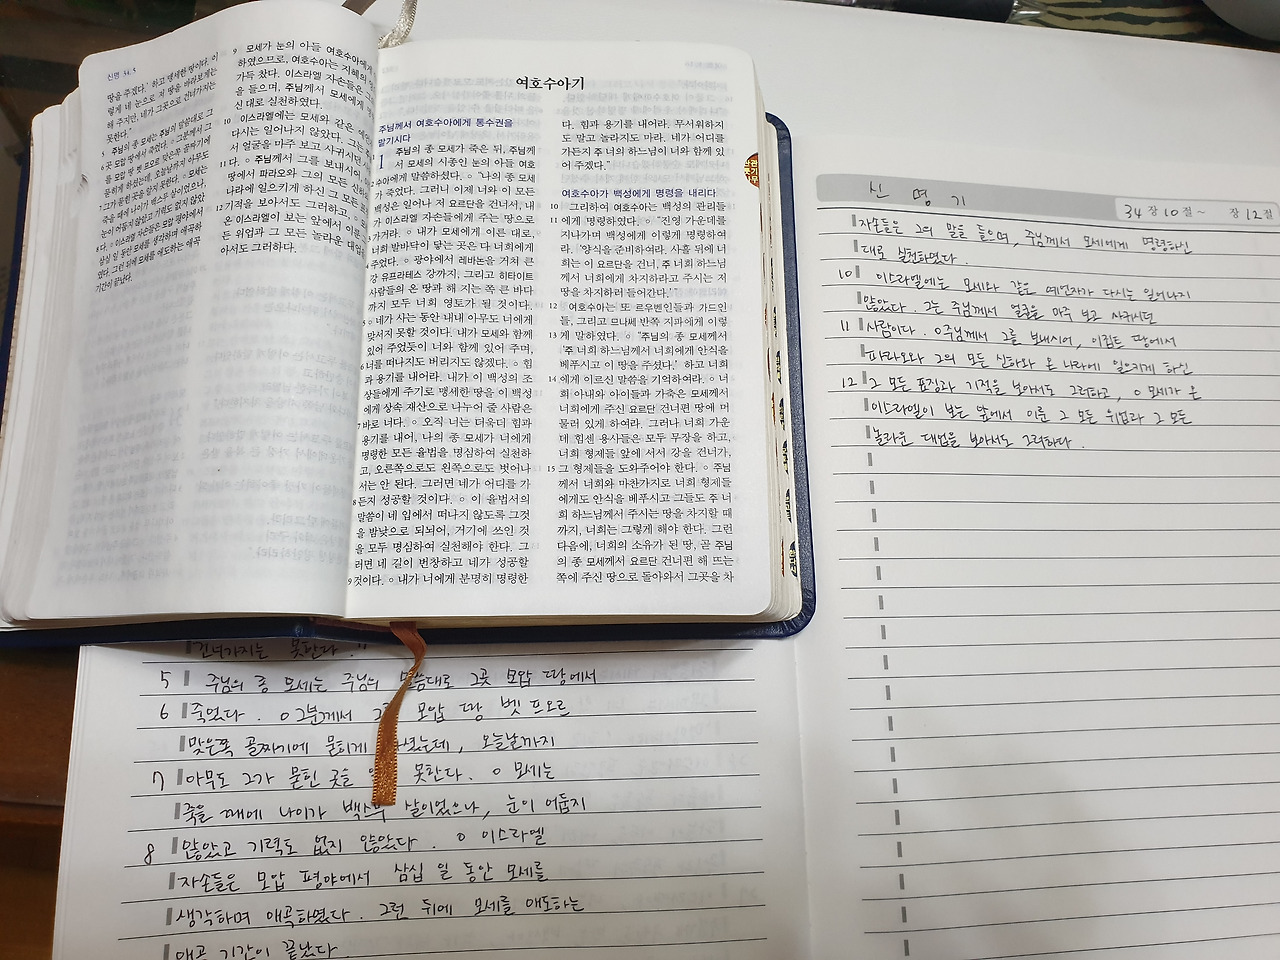 신명 34,5
땅을 주겠다." 하고 맹세한 땅이다. 이
렇게 네 눈으로 저 땅을 바라보게는
해 주지만, 네가 그곳으로 건너가지는
못한다."
5 주님의 종 모세는 주님의 말씀대로 그
6 곳 모압 땅에서 죽었다. ○ 그분께서 그
를 모압 땅 벳 프오르 맞은쪽 골짜기에
묻히게 하셨는데, 오늘날까지 아무도
7 그가 묻힌 곳을 알지 못한다. ○ 모세는
죽을 때에 나이가 백스무 살이었으나,
눈이 어둡지 않았고 기력도 없지 않았
8 다. ○ 이스라엘 자손들은 모압 평야에서
삼십 일 동안 모세를 생각하며 애곡하
였다. 그런 뒤에 모세를 애도하는 애곡
기간이 끝났다.
9 모세가 눈의 아들 여호수아에게
하였으므로, 여호수아는 지혜의
가득 찼다. 이스라엘 자손들은 그
을 들으며, 주님께서 모세에게
신 대로 실천하였다.
10 이스라엘에는 모세와 같은
다시는 일어나지 않았다. 그는
서 얼굴을 마주 보고 사귀시던
11 다. ○ 주님께서 그를 보내시어,
땅에서 파라오와 그의 모든 신하
나라에 일으키게 하신 그 모든
12 기적을 보아서도 그러하고, ○
온 이스라엘이 보는 앞에서 이룬
든 위업과 그 모든 놀라운 대업
아서도 그러하다.
여호수아기
주님께서 여호수아에게 통수권을
맡기시다
1 주님의 종 모세가 죽은 뒤, 주님께
서 모세의 시종인 눈의 아들 여호
2 수아에게 말씀하셨다. ○ "나의 종 모세
가 죽었다. 그러니 이제 너와 이 모든
백성은 일어나 저 요르단을 건너서, 내
가 이스라엘 자손들에게 주는 땅으로
3 가거라. ○ 내가 모세에게 이른 대로,
너희 발바닥이 닿는 곳은 다 너희에게
4 주었다. ○ 광야에서 레바논을 거쳐 큰
강 유프라테스 강까지, 그리고 히타이트
사람들의 온 땅과 해 지는 쪽 큰 바다
까지 모두 너희 영토가 될 것이다.
5 ○ 네가 사는 동안 내내 아무도 너에게
맞서지 못할 것이다. 내가 모세와 함께
있어 주었듯이 너와 함께 있어 주며,
6 너를 떠나지도 버리지도 않겠다. ○ 힘
과 용기를 내어라. 내가 이 백성의 조
상들에게 주기로 맹세한 땅을 이 백성
에게 상속 재산으로 나누어 줄 사람은
7 바로 너다. ○ 오직 너는 더욱더 힘과
용기를 내어, 나의 종 모세가 너에게
명령한 모든 율법을 명심하여 실천하
고, 오른쪽으로도 왼쪽으로도 벗어나
서는 안 된다. 그러면 네가 어디를 가
8 든지 성공할 것이다. ○ 이 율법서의
말씀이 네 입에서 떠나지 않도록 그것
을 밤낮으로 되뇌어, 거기에 쓰인 것
을 모두 명심하여 실천해야 한다. 그
러면 네 길이 번창하고 네가 성공할
9 것이다. ○ 내가 너에게 분명히 명령한
다. 힘과 용기를 내어라. 무서워하지
도 말고 놀라지도 마라. 네가 어디를
가든지 주 너의 하느님이 너와 함께 있
어 주겠다."
여호수아가 백성에게 명령을 내리다
10 그리하여 여호수아는 백성의 관리들
11 에게 명령하였다. ○ "진영 가운데를
지나가며 백성에게 이렇게 명령하여
라. '양식을 준비하여라. 사흘 뒤에 너
희는 이 요르단을 건너, 주 너희 하느님
께서 너희에게 차지하라고 주시는 저
땅을 차지하러 들어간다.'"
12 여호수아는 또 르우벤인들과 가드인
들, 그리고 므나쎄 반쪽 지파에게 이렇
13 게 말하였다. ○ "주님의 종 모세께서
'주 너희 하느님께서 너희에게 안식을
베푸시고 이 땅을 주셨다.' 하고 너희
14 에게 이르신 말씀을 기억하여라. ○ 너
희 아내와 아이들과 가축은 모세께서
너희에게 주신 요르단 건너편 땅에 머
물러 있게 하여라. 그러나 너희 가운
데 힘센 용사들은 모두 무장을 하고,
너희 형제들 앞에 서서 강을 건너가,
15 그 형제들을 도와주어야 한다. ○ 주님
께서 너희와 마찬가지로 너희 형제들
에게도 안식을 베푸시고 그들도 주 너
희 하느님께서 주시는 땅을 차지할 때
까지, 너희는 그렇게 해야 한다. 그런
다음에, 너희의 소유가 된 땅, 곧 주님
의 종 모세께서 요르단 건너편 해 뜨는
쪽에 주신 땅으로 돌아와서 그곳을 차
건너가지는 못한다."
5 주님의 종 모세는 주님의 말씀대로 그곳 모압 땅에서
6 죽었다. ○ 그분께서 모압 땅 벳 프오르
맞은쪽 골짜기에 묻히게 하셨는데, 오늘날까지
7 아무도 그가 묻힌 곳을 못한다. ○ 모세는
죽을 때에 나이가 백스무 살이었으나, 눈이 어둡지
8 않았고 기력도 없지 않았다. ○ 이스라엘
자손들은 모압 평야에서 삼십 일 동안 모세를
생각하며 애곡하였다. 그런 뒤에 모세를 애도하는
애곡 기간이 끝났다.
신 명 기
34장 10절~ 장 12절
자손들은 그의 말을 들으며, 주님께서 모세에게 명령하신
대로 실천하였다.
10 이스라엘에는 모세와 같은 예언자가 다시는 일어나지
않았다. 그는 주님께서 얼굴을 마주 보고 사귀시던
11 사람이다. ○ 주님께서 그를 보내시어, 이집트 땅에서
파라오와 그의 모든 신하와 온 나라에 일으키게 하신
12 그 모든 표징과 기적을 보아서도 그러하고, ○ 모세가 온
이스라엘이 보는 앞에서 이룬 그 모든 위업과 그 모든
놀라운 대업을 보아서도 그러하다.